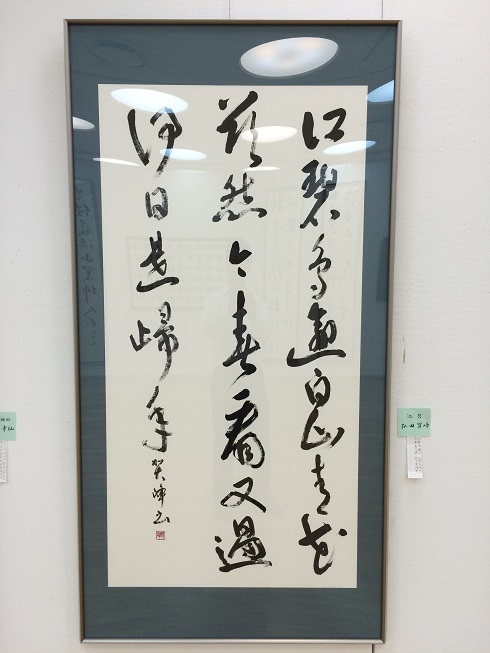 江碧鳥逾白山青花
欲然今春看又過
何日是歸年
賀峰书